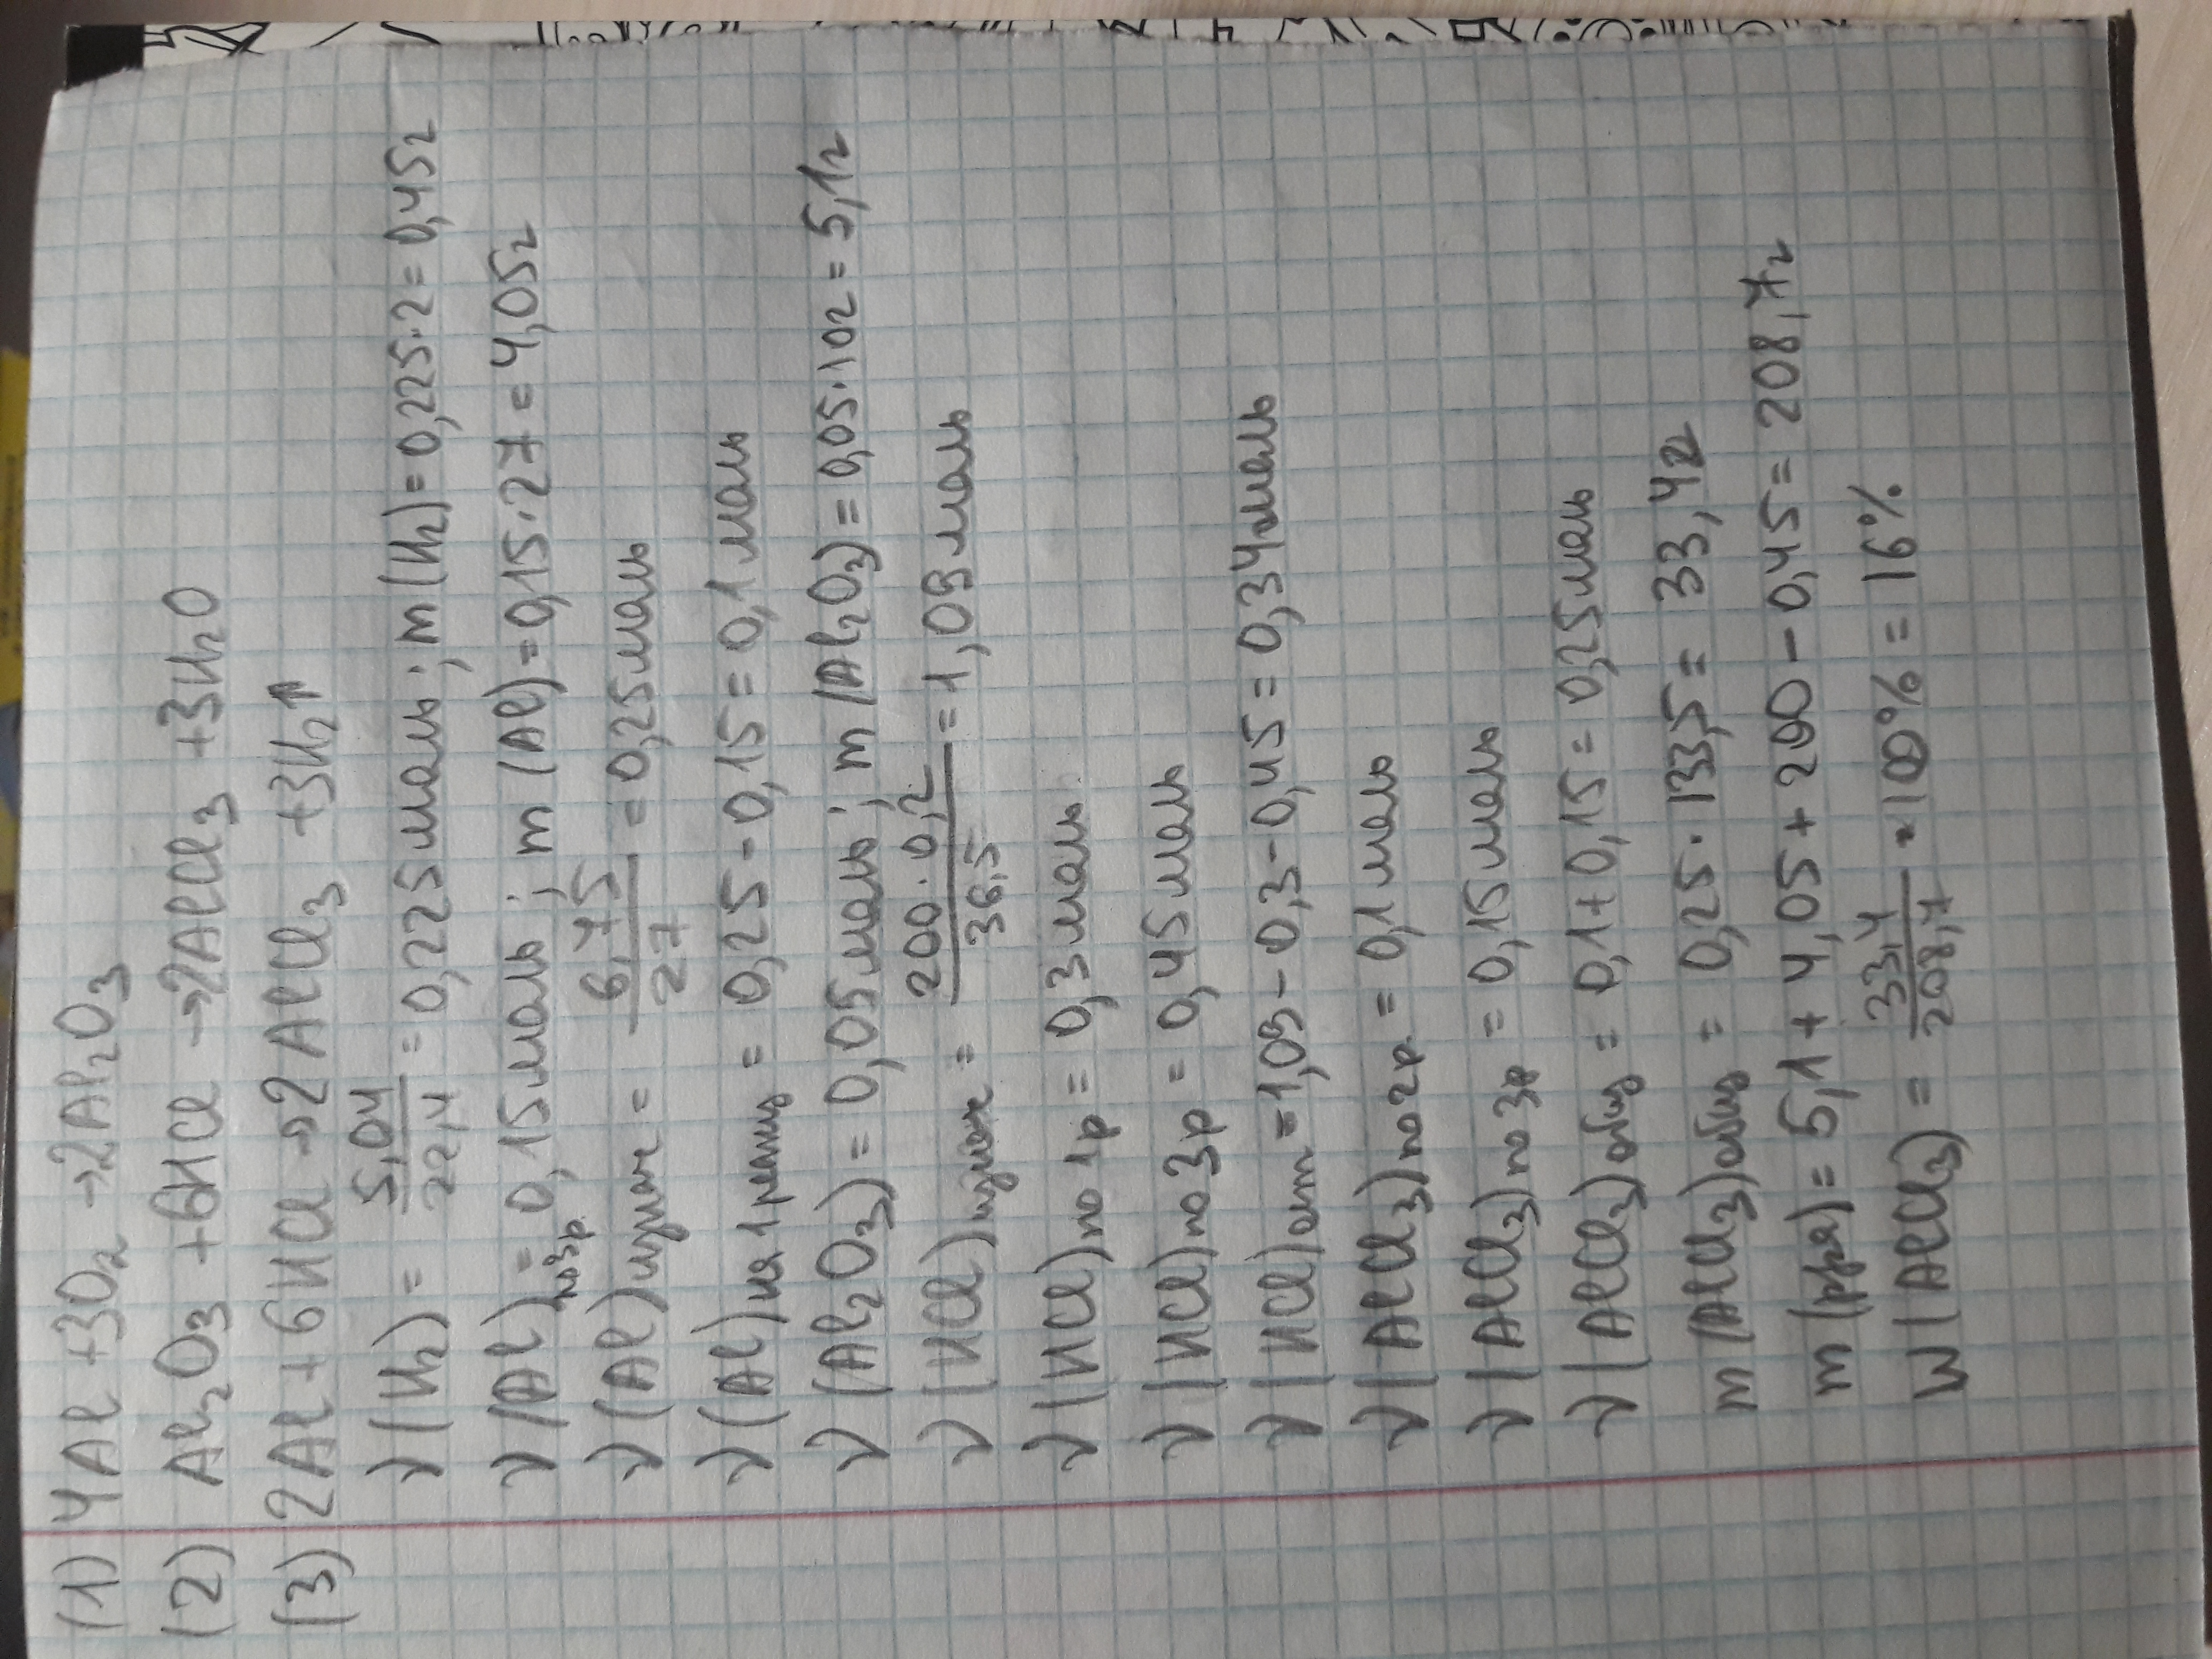 (1) 4Al + 3O₂ → 2Al₂O₃
(2) Al₂O₃ + 6HCl → 2AlCl₃ + 3H₂O
(3) 2Al + 6HCl → 2AlCl₃ + 3H₂↑
ν(H₂) = 5,04/22,4 = 0,225моль; m(H₂) = 0,225·2 = 0,45г
ν(Al)по3р. = 0,15моль; m(Al) = 0,15·27 = 4,05г
ν(Al)изнач = 6,75/27 = 0,25моль
ν(Al)на 1 реакц = 0,25 - 0,15 = 0,1 моль
ν(Al₂O₃) = 0,05моль; m(Al₂O₃) = 0,05·102 = 5,1г
ν(HCl)изнач = 200·0,2/36,5 = 1,09моль
ν(HCl)по 1р = 0,3моль
ν(HCl)по 3р = 0,45моль
ν(HCl)ост = 1,09 - 0,3 - 0,45 = 0,34моль
ν(AlCl₃)по2р = 0,1моль
ν(AlCl₃)по3р = 0,15моль
ν(AlCl₃)общ = 0,1 + 0,15 = 0,25моль
m(AlCl₃)общ = 0,25·133,5 = 33,4г
m(рра) = 5,1 + 4,05 + 200 - 0,45 = 208,7г
W(AlCl₃) = 33,4/208,7 · 100% = 16%